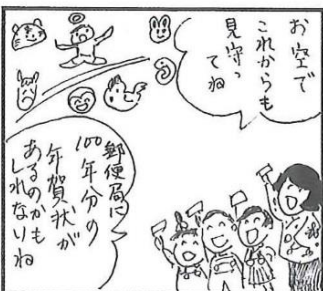 お空で
これからも
見守っ
てね
郵便局に
100年分の
年賀状が
あるのかも
しれないね